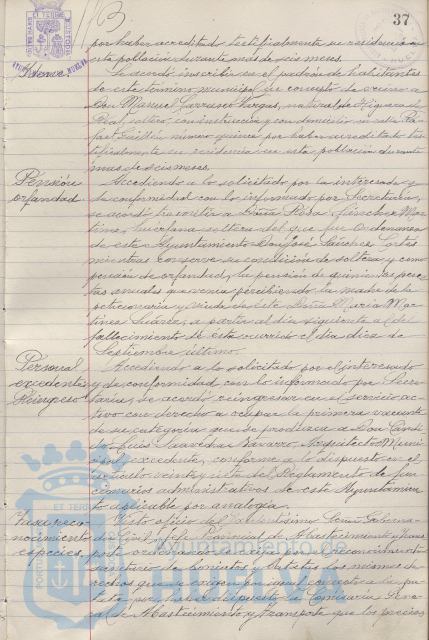 37
por haber acreditado testificalmente su residencia en
esta población durante más de seis meses.
Idem
Se acordó inscribir en el padrón de habitantes
de este término municipal en concepto de vecino a
Don Manuel Carrasco Vargas, natural de Higuera la
Real, soltero, con instrucción y con domicilio en calle
número quince por haber acreditado tes-
tificalmente su residencia en esta población durante
más de seis meses.
Pensión
orfandad
Accediendo a lo solicitado por la interesada y
de conformidad con lo informado por Secretaría,
se acordó transmitir a Doña Rosa Sánchez Mar-
tínez, huérfana soltera del que fué Ordenanza
de este Ayuntamiento Don José Sánchez Cortés
mientras conserve su condición de soltera y com-
pensión de orfandad, la pensión de quinientas pese-
tas anuales que venía percibiendo la madre de la
peticionaria y viuda de éste Doña María Mar-
tínez Suárez, a partir del día siguiente al del
fallecimiento de ésta ocurrido el día diez de
Septiembre último.
Personal
excedente
Reingreso
Accediendo a lo solicitado por el interesado
y de conformidad con lo informado por Secre-
taría, se acordó reingresar en el servicio ac-
tivo con derecho a ocupar la primera vacante
de su categoría que se produzca a Don
Luis Saavedra Navarro, Arquitecto Muni-
cipal excedente, conforme a lo dispuesto en el
artículo veintisiete del Reglamento de fun-
cionarios administrativos de este Ayuntamien-
to aplicable por analogía.
Tasa reco-
nocimiento
especies.
Visto oficio del Excelentísimo Señor Goberna-
dor Civil, Jefe Provincial de Abastecimientos y Trans-
portes ordenando
sanitario de boniatos y batatas los mismos de-
rechos que se exigen en igual concepto a la pa-
tata por haber dispuesto la Comisaría Gene-
ral de Abastecimientos y Transportes que los precios
Ayuntamiento de